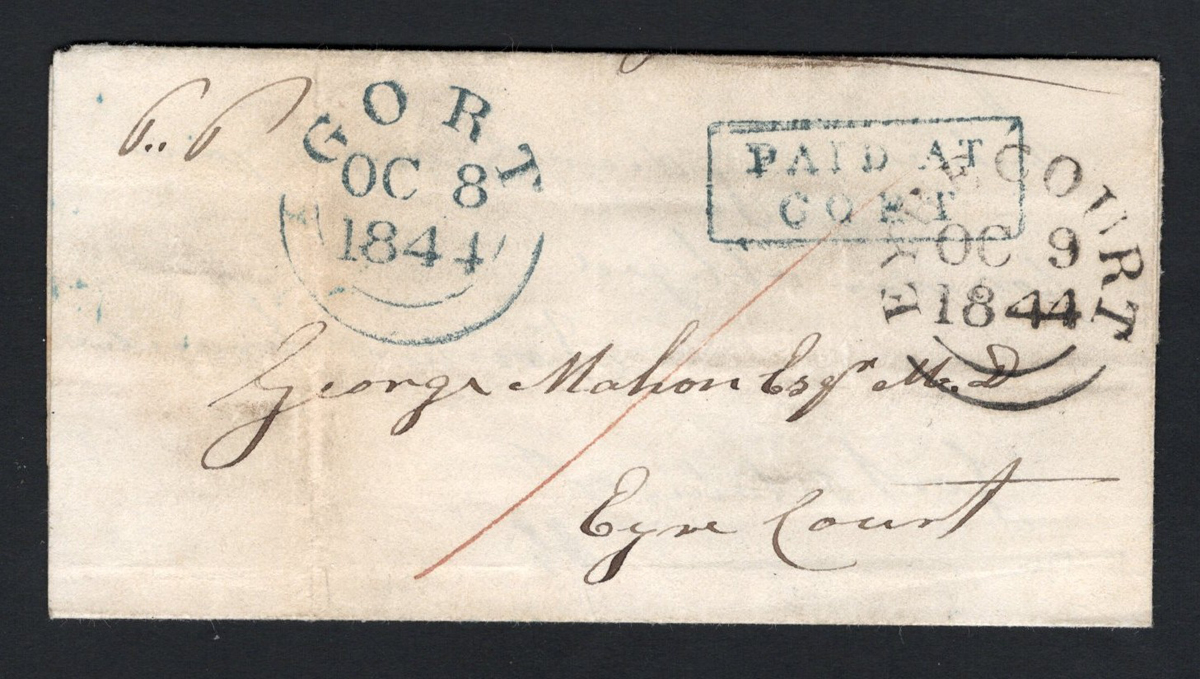 GORT
OC 8
1844
PAID AT
GORT
EYRECOURT
OC 9
1844
George Mahon Esqr M.D
Eyre Court